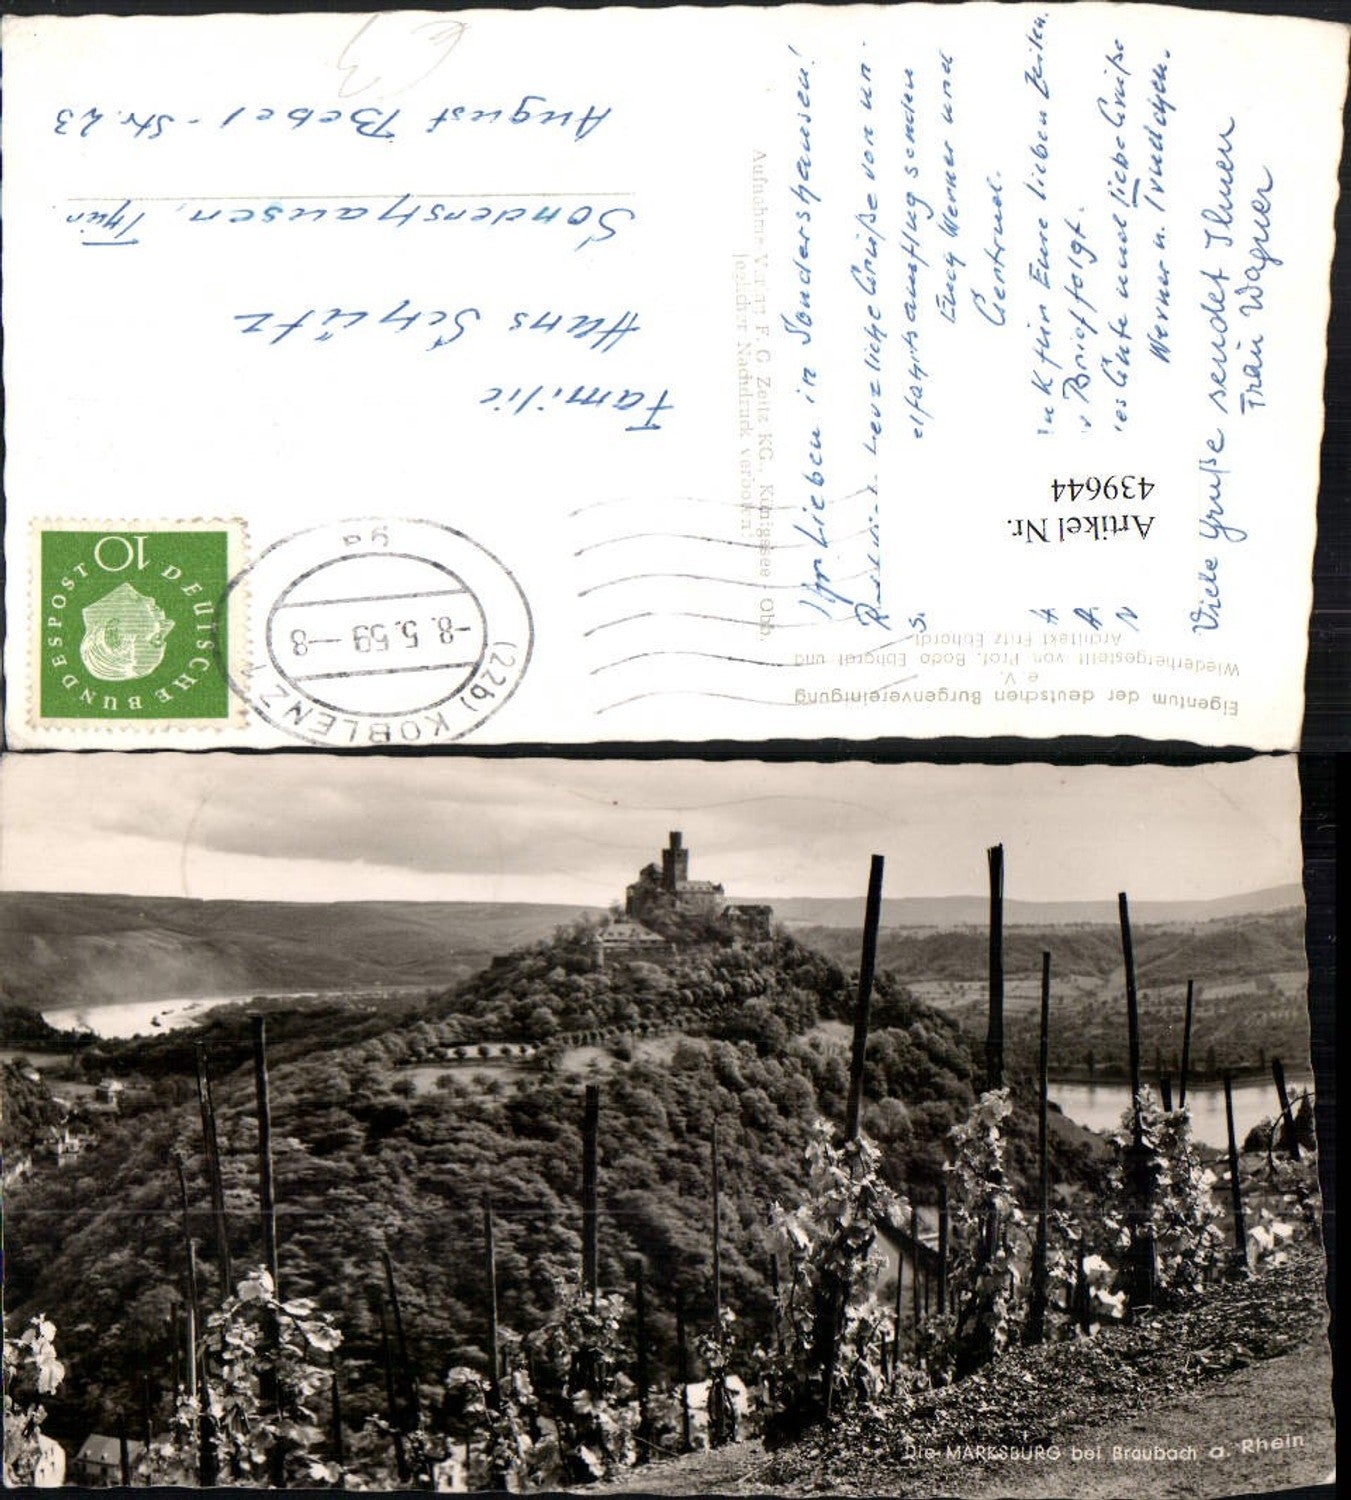 Ihr Lieben in Sondershausen!
herzliche Grüße von un-
ausflug senden
Euch Werner und
Gertrud.
für Eure lieben Zeilen.
Brief folgt.
Gute und liebe Grüße
Werner u. Trudchen.
Viele Grüße sendet Ihnen
Frau Wagner
Artikel Nr.
439644
Eigentum der deutschen Burgenvereinigung
e. V.
Wiederhergestellt von Prof. Bodo Ebhardt und
Architekt Fritz Ebhardt
Aufnahme-Verlag F. G. Zeitz KG., Königssee / Obb.
Jeglicher Nachdruck verboten!
DEUTSCHE BUNDESPOST
10
(22b) KOBLENZ
-8.5.59-8
ya
Familie
Hans Schütz
Sondershausen, Thür.
August Bebel-Str. 23
Die MARKSBURG bei Braubach a. Rhein